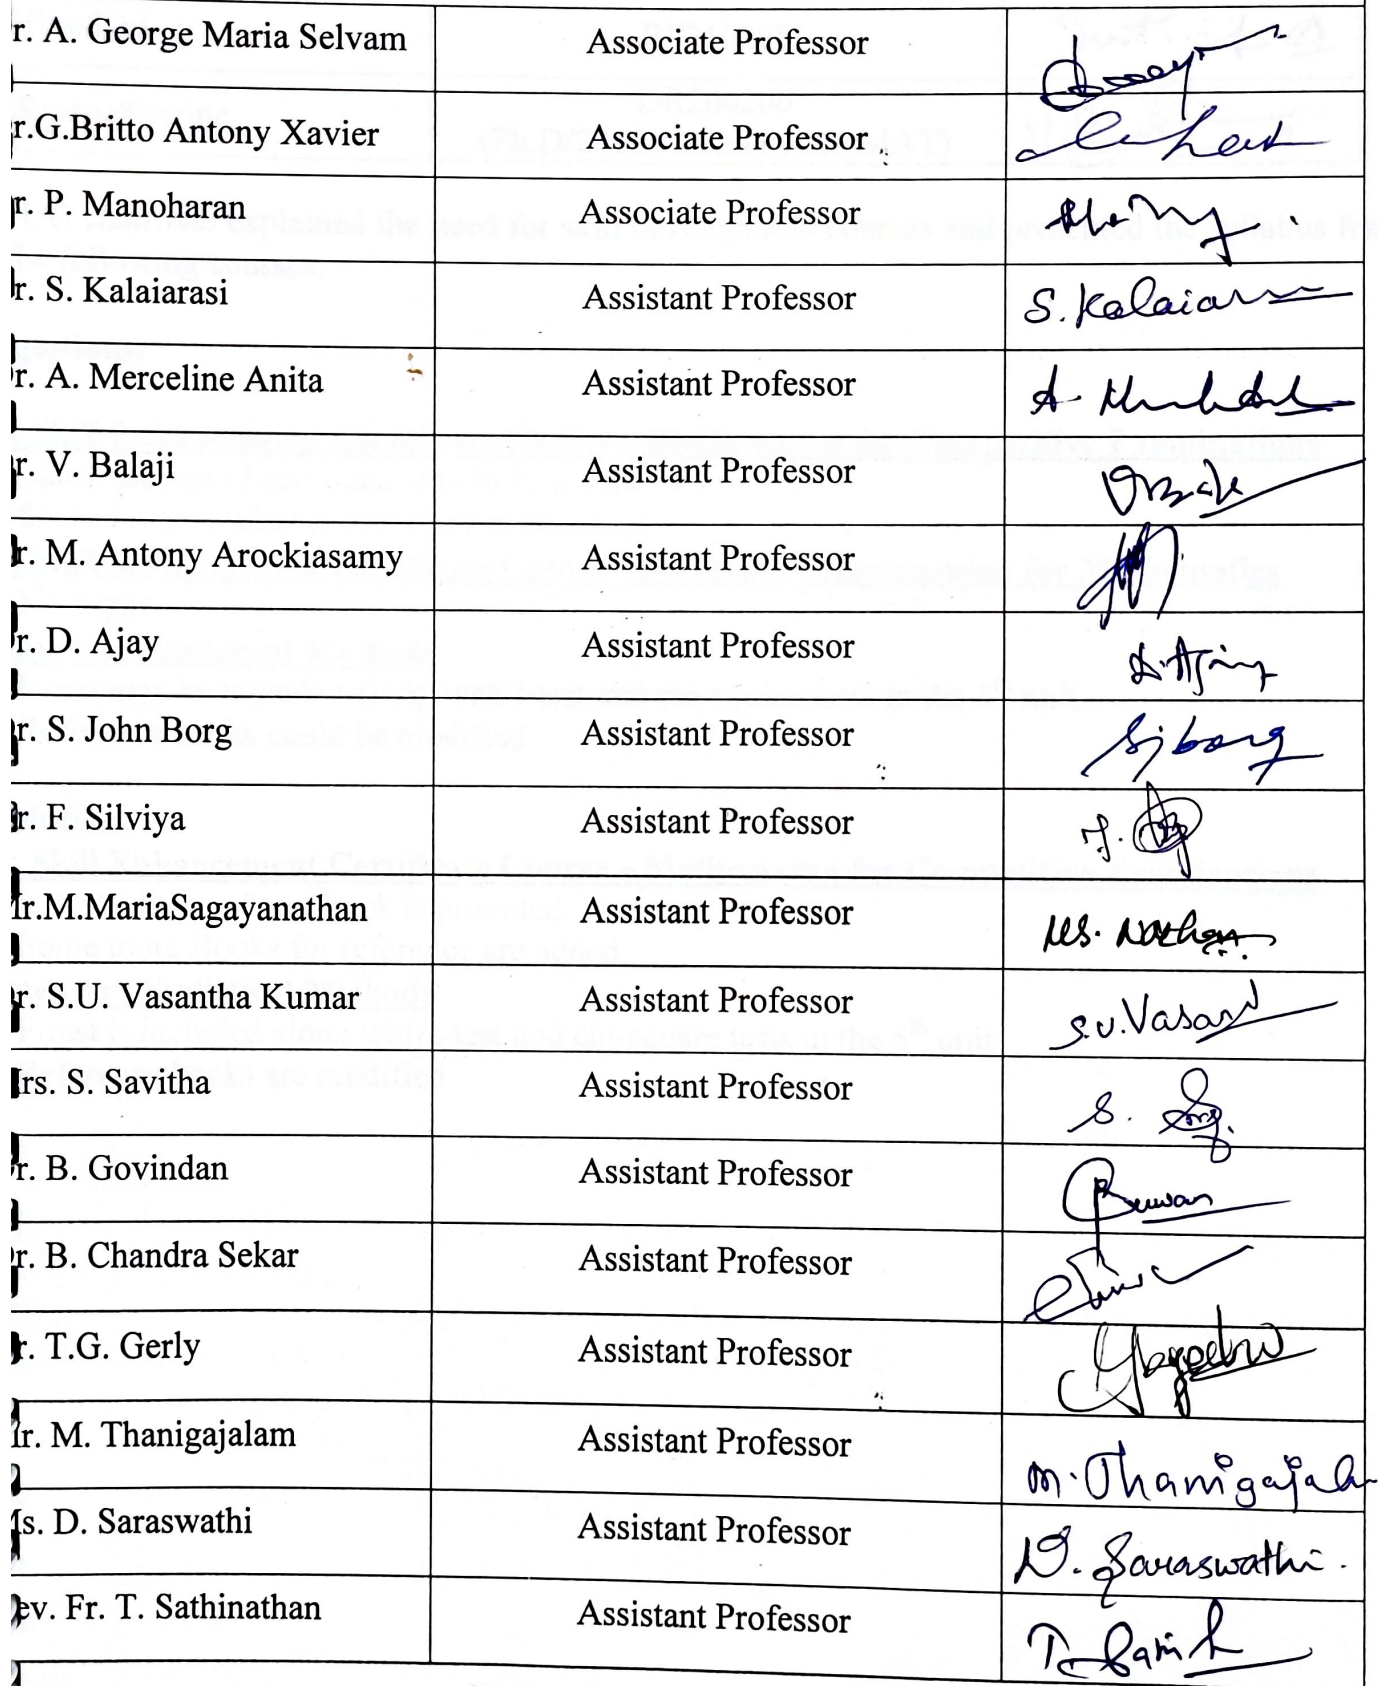 r. A. George Maria Selvam Associate Professor
r.G.Britto Antony Xavier Associate Professor
r. P. Manoharan Associate Professor
r. S. Kalaiarasi Assistant Professor S. Kalaiar
r. A. Merceline Anita Assistant Professor A.
r. V. Balaji Assistant Professor
r. M. Antony Arockiasamy Assistant Professor
r. D. Ajay Assistant Professor D. Ajay
r. S. John Borg Assistant Professor Sjborg
r. F. Silviya Assistant Professor F.
r.M.MariaSagayanathan Assistant Professor MS. Nathan
r. S.U. Vasantha Kumar Assistant Professor S.U. Vasan
rs. S. Savitha Assistant Professor S.
r. B. Govindan Assistant Professor
r. B. Chandra Sekar Assistant Professor
r. T.G. Gerly Assistant Professor
r. M. Thanigajalam Assistant Professor M. Thanigajala
s. D. Saraswathi Assistant Professor D. Saraswathi.
ev. Fr. T. Sathinathan Assistant Professor T.